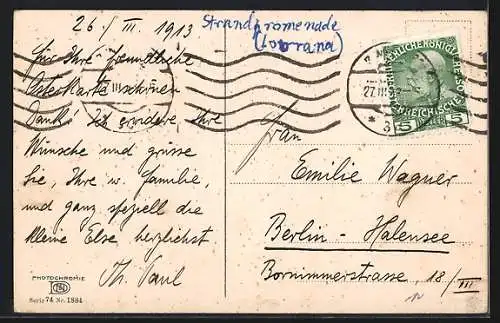 26./III. 1913
Strandpromenade
(Lovrana)
Für Ihre freundliche
Osterkarte schönen
Dank! Ich erwidere Ihre
Wünsche und grüsse
Sie, Ihre w. Familie,
und ganz speziell die
kleine Else herzlichst
Th. Paul
PHOTOCHROMIE
Serie 74 Nr. 1884
27.III.13
* 3
5 5
Frau
Emilie Wagner
Berlin-Halensee
Bornimmerstrasse, 18/III